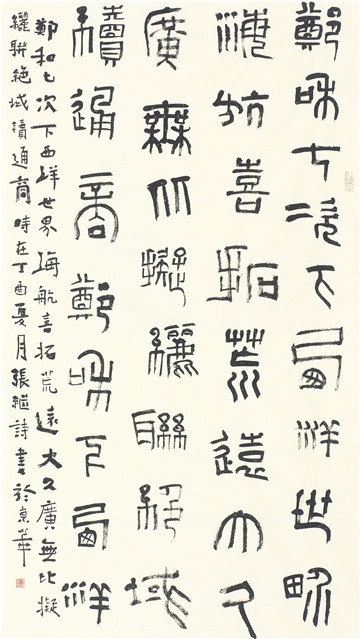 鄭和七次下西洋世界
海航喜拓荒遠大久
廣無比擬纚聯絕域
續通商鄭和下西洋
鄭和七次下西洋世界海航喜拓荒遠大久廣無比擬
纚聯絕域續通商時在丁酉夏月張繼詩書於京華